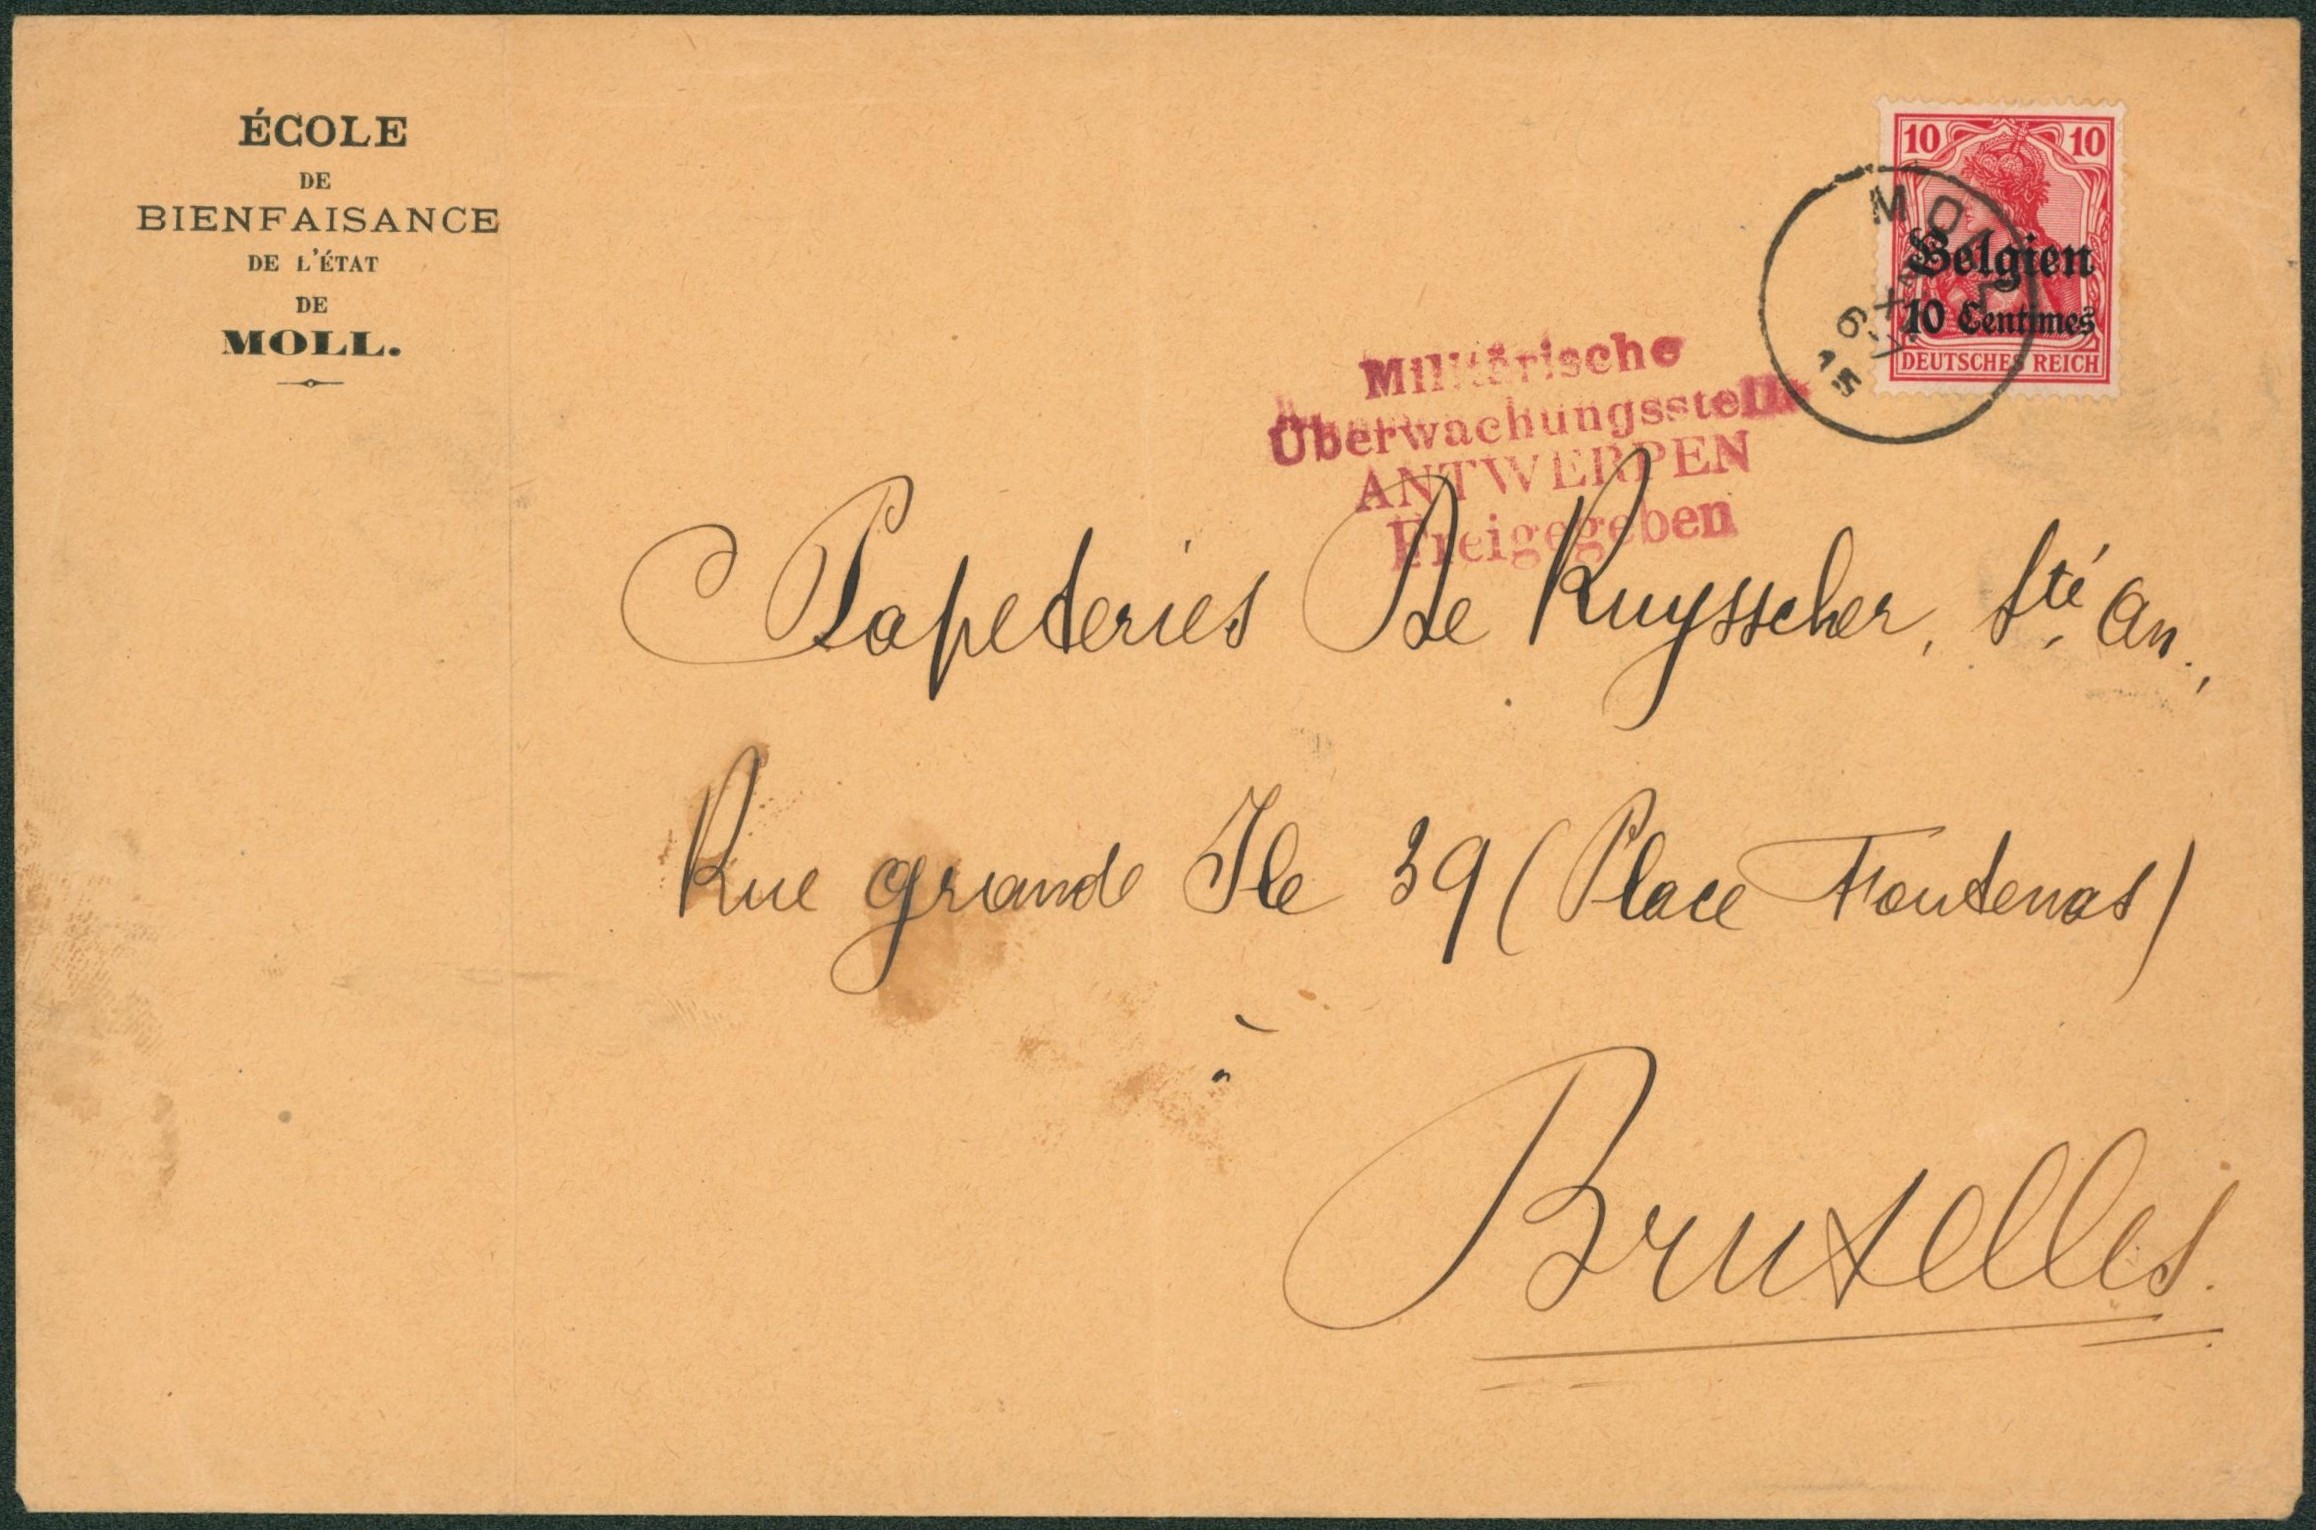 ÉCOLE
DE
BIENFAISANCE
DE L'ÉTAT
DE
MOLL.
10 10
Belgien
10 Centimes
DEUTSCHES REICH
MOLL
Militärische
Überwachungsstelle
ANTWERPEN
Freigegeben
Papeteries De Ruysscher, Sté An.,
Rue grande Ile 39 (Place Fontenas)
à
Bruxelles.